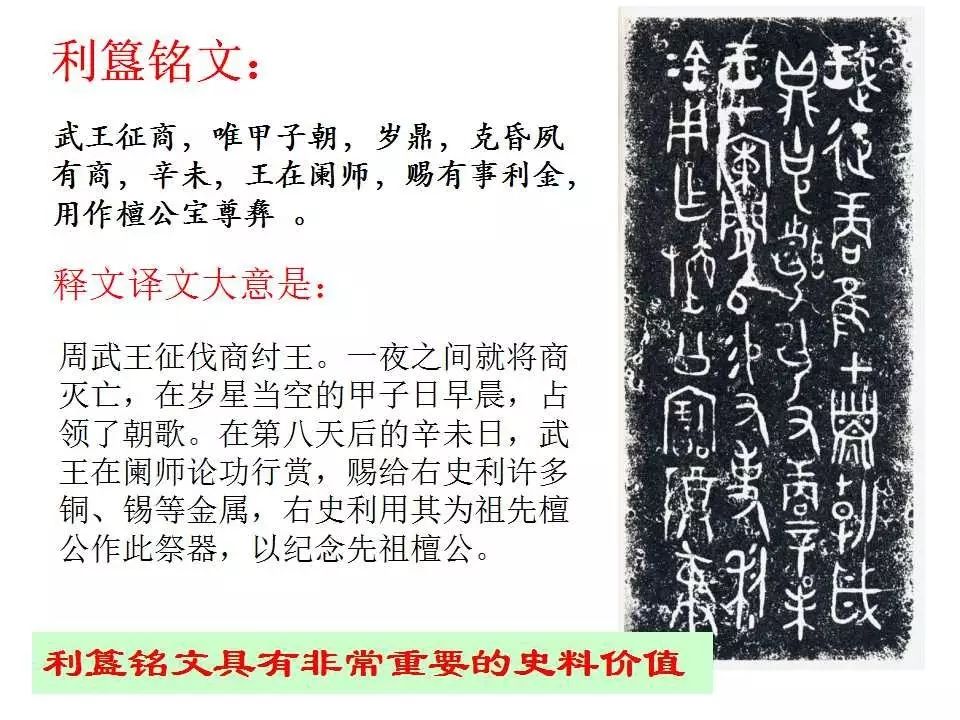 利簋铭文：
武王征商，唯甲子朝，岁鼎，克昏夙
有商，辛未，王在阑师，赐有事利金，
用作檀公宝尊彝 。
释文译文大意是：
周武王征伐商纣王。一夜之间就将商
灭亡，在岁星当空的甲子日早晨，占
领了朝歌。在第八天后的辛未日，武
王在阑师论功行赏，赐给右史利许多
铜、锡等金属，右史利用其为祖先檀
公作此祭器，以纪念先祖檀公。
利簋铭文具有非常重要的史料价值